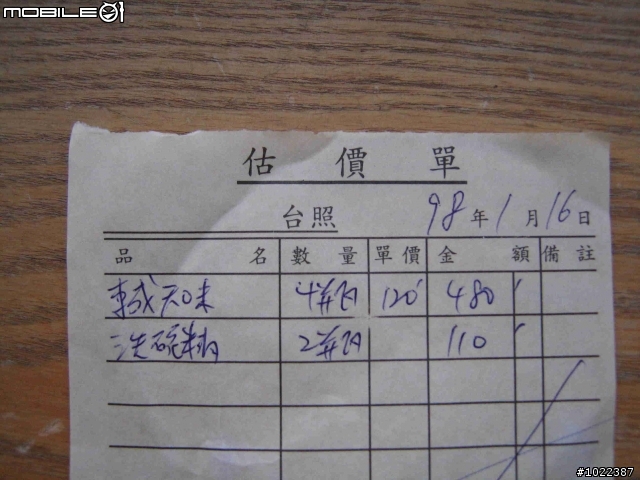 MOBILE01
估價單
台照 98年1月16日
品名 數量 單價 金額 備註
4瓶 120 480
洗碗精 2瓶 110
#1022387